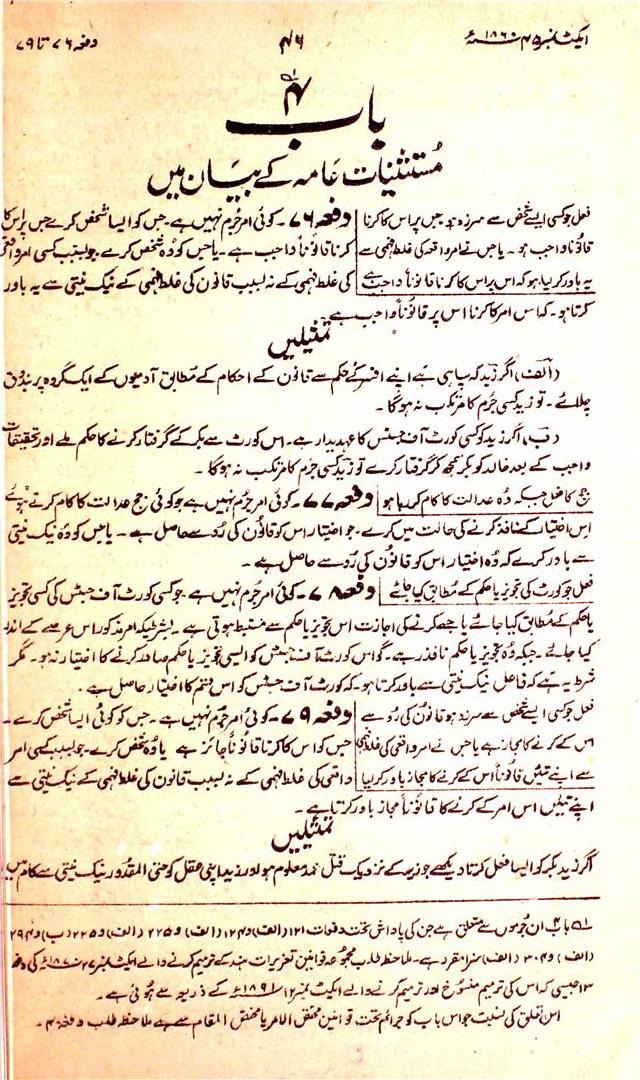 ایکٹ نمبر ۴۵ سنہ ۱۸۶۰ء
۴۶
دفعہ ۷۶ تا ۷۹
باب ۴
مُستثنیات عامہ کے بیان میں
فعل جو کسی ایسے شخص سے سرزد ہو جس پر اس کا کرنا
قانوناً واجب ہو۔ یا جس نے امر واقعہ کی غلط فہمی سے
یہ باور کر لیا ہو کہ اس پر اس کا کرنا قانوناً واجب ہے
دفعہ ۷۶۔ کوئی امر جُرم نہیں ہے۔ جس کو ایسا شخص کرے جس پر اس کا
کرنا قانوناً واجب ہے۔ یا جس کو وُہ شخص کرے جو بسبب کسی امر واقعی
کی غلط فہمی کے نہ بسبب قانون کی غلط فہمی کے نیک نیتی سے یہ باور
کرتا ہو۔ کہ اس امر کا کرنا اس پر قانوناً واجب ہے۔
تمثیلیں
(الف) اگر زید کہ سپاہی ہے اپنے افسر کے حکم سے قانون کے احکام کے مطابق آدمیوں کے ایک گروہ پر بندوق
چلائے۔ تو زید کسی جُرم کا مرتکب نہ ہوگا۔
(ب) اگر زید کو کسی کورٹ آف جسٹس کا عہدیدار ہے۔ اس کورٹ سے بکر کے گرفتار کرنے کا حکم ملے اور تحقیقات
واجب کے بعد خالد کو بکر سمجھ کر گرفتار کرے تو زید کسی جرم کا مرتکب نہ ہوگا۔
جج کا فعل جبکہ وُہ عدالت کا کام کر رہا ہو
دفعہ ۷۷۔ کوئی امر جُرم نہیں ہے جو کوئی جج عدالت کا کام کرتے ہوئے
اس اختیار کے نافذ کرنے کی حالت میں کرے۔ جو اختیار اس کو قانون کی رُو سے حاصل ہے۔ یا جس کو وُہ نیک نیتی
سے باور کرے کہ وُہ اختیار اس کو قانون کی رُو سے حاصل ہے۔
فعل جو کورٹ کی تجویز یا حکم کے مُطابق کیا جائے
دفعہ ۷۸۔ کوئی امر جُرم نہیں ہے جو کسی کورٹ آف جسٹس کی کسی تجویز
یا حکم کے مُطابق کیا جائے یا جسے کرنے کی اجازت اس تجویز یا حکم سے مستنبط ہوتی ہے۔ بشرطیکہ امر مذکور اس عرصے کے اندر
کیا جائے۔ جبکہ وُہ تجویز یا حکم نافذ رہے۔ گو اس کورٹ آف جسٹس کو ایسی تجویز یا حکم صادر کرنے کا اختیار نہ ہو۔ مگر
شرط یہ ہے کہ فاعل نیک نیتی سے باور کرتا ہو۔ کہ کورٹ آف جسٹس کو اس قسم کا اختیار حاصل ہے۔
فعل جو کسی ایسے شخص سے سرزد ہو قانون کی رُو سے
اس کے کرنے کا مجاز ہے یا جس نے امر واقعی کی غلط فہمی
سے اپنے تئیں قانوناً اس کے کرنے کا مجاز باور کر لیا
دفعہ ۷۹۔ کوئی امر جُرم نہیں ہے۔ جس کو کوئی ایسا شخص کرے۔
جس کو اس کا کرنا قانوناً جائز ہے یا وُہ شخص کرے۔ جو بسبب کسی امر
واقعی کی غلط فہمی کے نہ بسبب قانون کی غلط فہمی کے نیک نیتی سے
اپنے تئیں اس امر کے کرنے کا قانوناً مجاز باور کرتا ہے۔
تمثیلیں
اگر زید بکر کو ایسا فعل کرتا دیکھے جو زید کے نزدیک قتل عمد معلوم ہو اور زید اپنی عقل کو حتی المقدور نیک نیتی سے کام میں
باب ۴ ان جُرموں سے متعلق ہے جن کی پاداش تحت دفعات ۱۲۱ (الف) و ۱۲۴ (الف) و ۲۲۵ (الف) و ۲۲۵ (ب) و ۲۹۴
(الف) و ۳۰۴ (الف) سزا مقرر ہے۔ ملاحظہ طلب مجموعہ قوانین تعزیرات ہند کے ترمیم کرنے والے ایکٹ نمبر ۲۷ سنہ ۱۸۷۰ء کی دفعہ
۱۳ جیسی کہ اس کی ترمیم منسوخ اور ترمیم کرنے والے ایکٹ نمبر ۱۲ سنہ ۱۸۹۱ء کے ذریعہ سے ہوئی ہے۔
اس تعلق کی نسبت جو اس باب کو جرائم تحت قوانین مختص الامر یا مختص المقام سے ہے ملاحظہ طلب دفعہ ۴۰۔